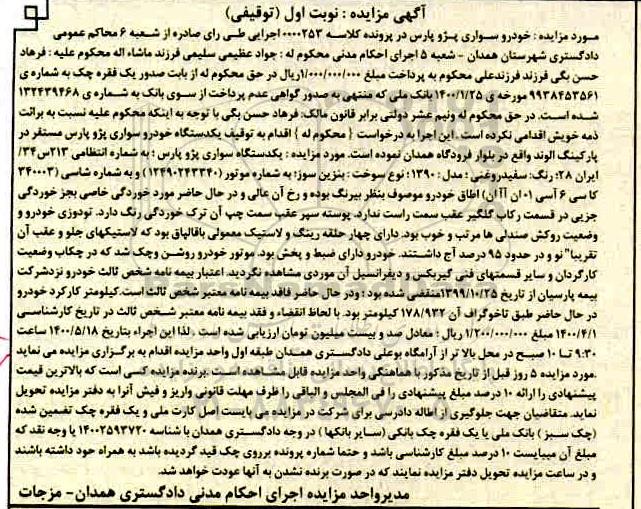 آگهی مزایده : نوبت اول (توقیفی)
مـورد مزایده : خودرو سواری پـژو پارس در پرونده کلاسه ۰۰۰۰۲۵۳ اجرایی طـی رای صادره از شـعبه ۶ محاکم عمومی
دادگستری شهرستان همدان - شعبه ۵ اجرای احکام مدنی محکوم له : جواد عظیمی سلیمی فرزند ماشاء اله محکوم علیه : فرهاد
حسن بگی فرزند فرزندعلی محکوم به پرداخت مبلغ ۱/۰۰۰/۰۰۰/۰۰۰ریال در حق محکوم له از بابت صدور یک فقره چک به شماره ی
۹۹۳۸۴۵۳۵۶۱ مورخه ی ۱۴۰۰/۱/۲۵ بانک ملی که منتهی به صدور گواهی عدم پرداخت از سوی بانک به شماره ی ۱۳۲۴۳۹۴۶۸
شده است. در حق محکوم له ونیم عشر دولتی برابر قانون مالک: فرهاد حسن بگی با توجه به اینکه محکوم علیه نسبت به برائت
ذمه خویش اقدامی نکرده است . این اجرا به درخواست { محکوم له } اقدام به توقیف یکدستگاه خودرو سواری پژو پارس مستقر در
پارکینگ الوند واقع در بلوار فرودگاه همدان نموده است. مورد مزایده : یکدستگاه سواری پژو پارس : به شماره انتظامی ۲۱۳س۳۴/
ایران ۲۸: رنگ: سفیدروغنی : مدل : ۱۳۹۰ : نوع سوخت : بنزین سوز: به شماره موتور (۱۲۴۹۰۲۴۳۳۴۰) و به شماره شاسی (۳۴۰۰۰۳
کا سی ۶ آسی ۰۱ ان آآ ان) اطاق خودرو موصوف بنظر بیرنگ بوده و رخ آن عالی و در حال حاضر مورد خوردگی خاصی بجز خوردگی
جزیی در قسمت رکاب گلگیر عقب سمت راست ندارد. پوسته سپر عقب سمت چپ آن ترک خوردگی رنگ دارد. تودوزی خودرو و
وضعیت روکش صندلی ها مرتب و خوب بود. دارای چهار حلقه رینگ و لاستیک معمولی باقالپاق بود که لاستیکهای جلو و عقب آن
تقریبا" نو و در حدود ۹۵ درصد آج داشتند. خودرو دارای ضبط و پخش بود. موتور خودرو روشن وچک شد که در چکاب وضعیت
کارگردان و سایر قسمتهای فنی گیربکس و دیفرانسیل آن موردی مشاهده نگردید. اعتبار بیمه نامه شخص ثالث خودرو نزدشرکت
بیمه پارسیان از تاریخ ۱۳۹۹/۱۰/۲۵منقضی شده بود : ودر حال حاضر فاقد بیمه نامه معتبر شخص ثالث است.کیلومتر کارکرد خودرو
در حال حاضر طبق تاخوگراف آن ۱۷۸/۹۳۲ کیلومتر بود. با لحاظ انقضاء و فقد بیمه نامه معتبر شـخص ثالث در تاریخ کارشناسی
۱۴۰۰/۴/۱ مبلغ ۱/۲۰۰/۰۰۰/۰۰۰ ریال : معادل صد و بیست میلیون تومان ارزیابی شده است . لذا این اجراء بتاریخ ۱۴۰۰/۵/۱۸ ساعت
۹:۳۰ تـا ۱۰ صبح در محل بالا تر از آرامگاه بوعلی دادگستری همـدان طبقه اول واحد مزایده اقدام به برگزاری مزایده می نماید
.مورد مزایده ۵ روز قبل از تاریخ مذکور با هماهنگی واحد مزایده قابل مشاهده است .برنده مزایده کسی است که بالاترین قیمت
پیشنهادی را ارائه ۱۰ درصد مبلغ پیشنهادی را فی المجلس و الباقی را ظرف مهلت قانونی واریز و فیش آنرا به دفتر مزایده تحویل
نماید. متقاضیان جهت جلوگیری از اطاله دادرسی برای شرکت در مزایده می بایست اصل کارت ملی و یک فقره چک تضمین شده
(چک سـبز ) بانک ملی یا یک فقره چک بانکی (سـایر بانکها ) در وجه دادگستری همدان با شناسه ۱۴۰۰۲۵۹۳۷۲۰ یا وجه نقد که
مبلغ آن میبایست ۱۰ درصد مبلغ کارشناسی باشد و حتما شماره پرونده برروی چک قید گردیده باشد به همراه خود داشته باشند
و در ساعت مزایده تحویل دفتر مزایده نمایند که در صورت برنده نشدن به آنها عودت خواهد شد.
مدیرواحد مزایده اجرای احکام مدنی دادگستری همدان- مزجات